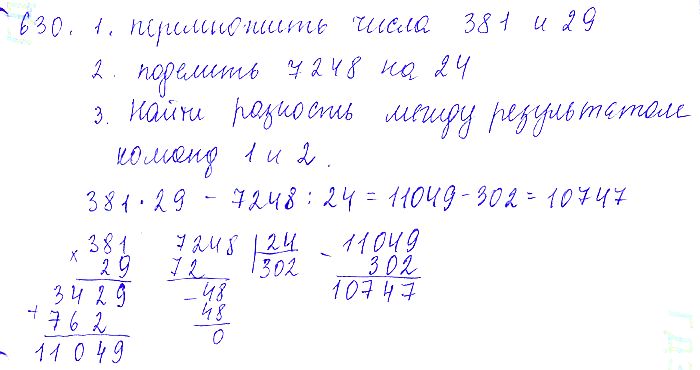 630. 1. перемножить числа 381 и 29
2. поделить 7248 на 24
3. Найти разность между результатом
команд 1 и 2.
381 · 29 - 7248 : 24 = 11049 - 302 = 10747
× 381 7248 24 - 11049
29 72 302 302
3429 - 48 10747
+ 762 48
11049 0